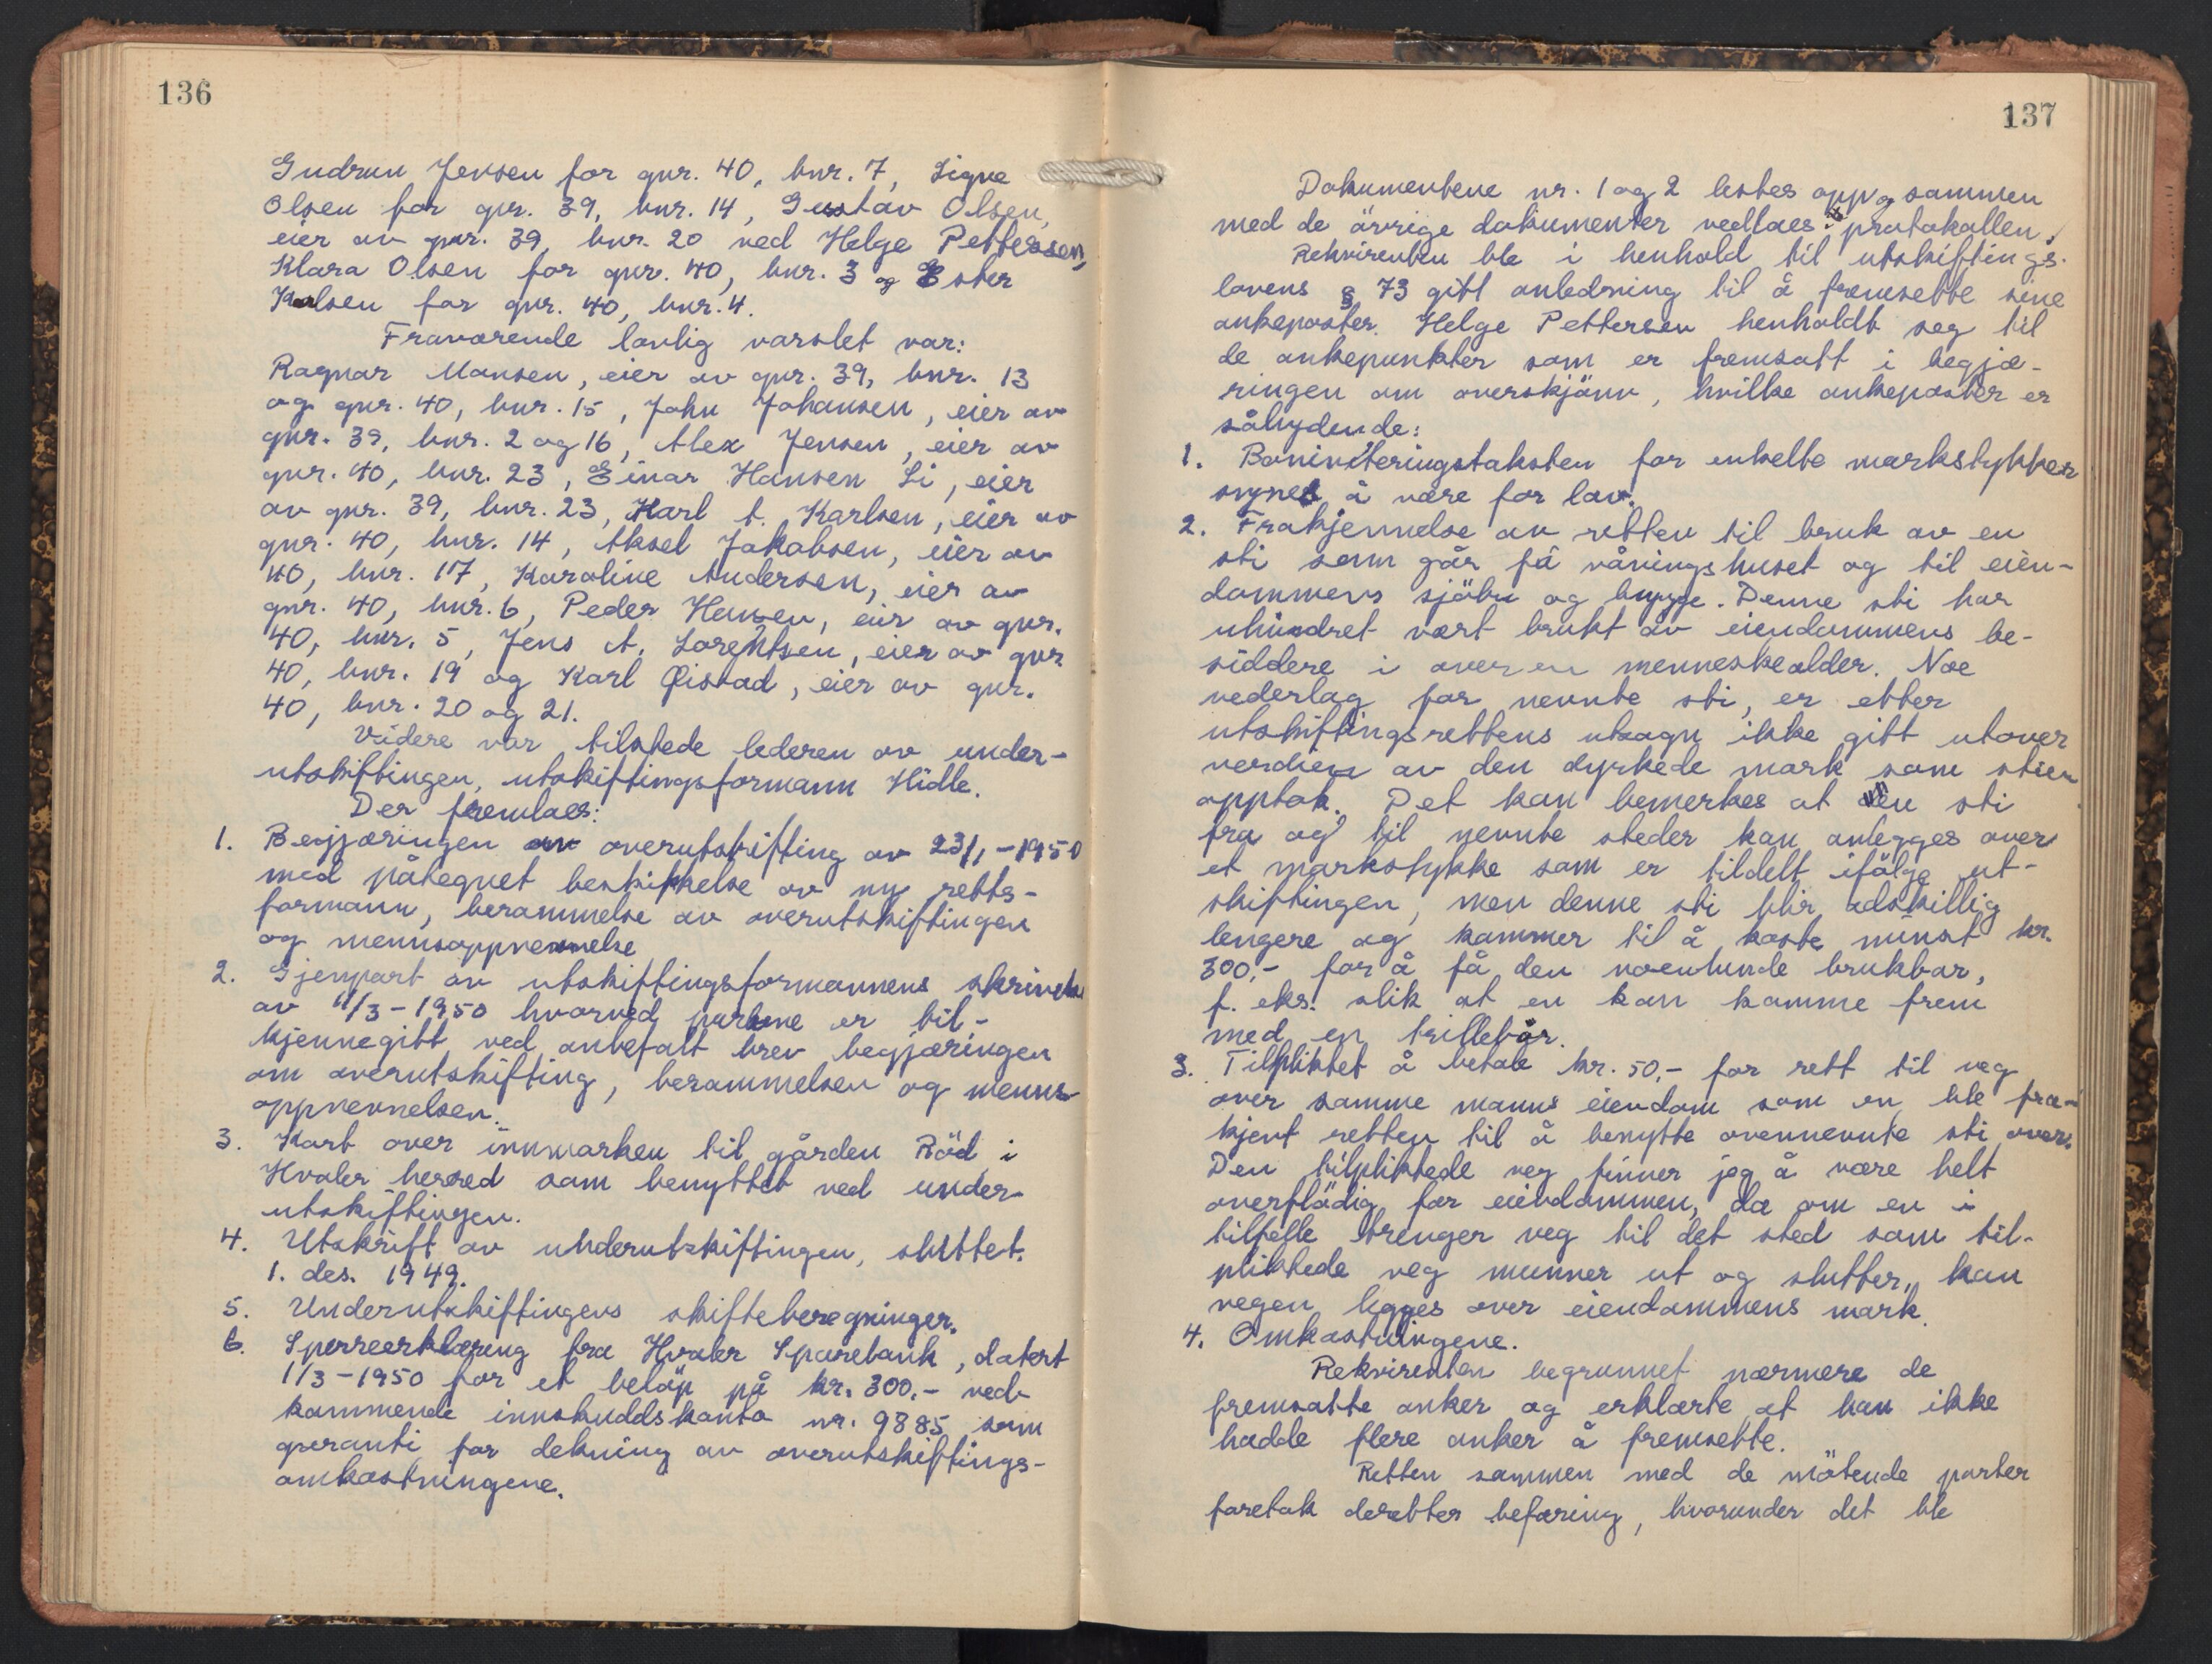 136
Gudrun Jensen for gnr. 40, bnr. 7, Signe
Olsen for gnr. 39, bnr. 14, Gustav Olsen,
eier av gnr. 39, bnr. 20 ved Helge Pettersen,
Klara Olsen for gnr. 40, bnr. 3 og Ester
Karlsen for gnr. 40, bnr. 4.
Fraværende lovlig varslet var:
Ragnar Monsen, eier av gnr. 39, bnr. 13
og gnr. 40, bnr. 15, John Johansen, eier av
gnr. 39, bnr. 2 og 16, Alex Jensen, eier av
gnr. 40, bnr. 23, Einar Hansen Li, eier
av gnr. 39, bnr. 23, Karl A. Karlsen, eier av
gnr. 40, bnr. 14, Aksel Jakobsen, eier av
40, bnr. 17, Karoline Andersen, eier av
gnr. 40, bnr. 6, Peder Hansen, eier av gnr.
40, bnr. 5, Jens A. Lorentsen, eier av gnr.
40, bnr. 19 og Karl Öistad, eier av gnr.
40, bnr. 20 og 21.
Videre var tilstede lederen av under-
utskiftingen, utskiftingsformann Hidle.
Der fremlaes:
1. Begjæringen av overutskifting av 23/1-1950
med påtegnet beskikkelse av ny retts-
formann, berammelse av overutskiftingen
og mennsoppnevnelse
2. Gjenpart av utskiftingsformannens skrivelse
av 11/3-1950 hvorved partene er til-
kjennegitt ved anbefalt brev begjæringen
om overutskifting, berammelsen og menns-
oppnevnelsen.
3. Kart over innmarken til gården Röd i
Hvaler herred som benyttet ved under-
utskiftingen.
4. Utskrift av underutskiftingen, sluttet
1. des. 1949.
5. Underutskiftingens skifteberegninger.
6. Sperreerklæring fra Hvaler Sparebank, datert
1/3-1950 for et belöp på kr. 300.- ved-
kommende innskuddskonto nr. 9885 som
garanti for dekning av overutskiftings-
omkostningene.
137
Dokumentene nr. 1 og 2 lestes opp og sammen
med de övrige dokumenter vedlaes protokollen.
Rekvirenten ble i henhold til utskiftings-
lovens § 73 gitt anledning til å fremsette sine
ankeposter. Helge Pettersen henholdt seg til
de ankepunkter som er fremsatt i begjæ-
ringen om overskjönn, hvilke ankeposter er
sålydende:
1. Boniteringstaksten for enkelte markstykker
synes å være for lav.
2. Frakjennelse av retten til bruk av en
sti som går få våningshuset og til eien-
dommens sjöbu og brygge. Denne sti har
uhindret vært brukt av eiendommens be-
siddere i over en menneskealder. Noe
vederlag for nevnte sti, er etter
utskiftingsrettens utsagn ikke gitt utover
verdien av den dyrkede mark som stien
opptok. Det kan bemerkes at en sti
fra og til nevnte steder kan anlegges over
et markstykke som er tildelt ifölge ut-
skiftingen, men denne sti blir adskillig
lengere og kommer til å koste minst kr.
300.- for å få den noenlunde brukbar,
f. eks. slik at en kan komme frem
med en trillebår.
3. Tilpliktet å betale kr. 50.- for rett til veg
over samme manns eiendom som en ble fra-
kjent retten til å benytte ovennevnte sti over.
Den tilpliktede veg finner jeg å være helt
overflödig for eiendommen, da om en i
tilfelle trenger veg til det sted som til-
pliktede veg munner ut og slutter, kan
vegen legges over eiendommens mark.
4. Omkostningene.
Rekvirenten begrunnet nærmere de
fremsatte anker og erklærte at han ikke
hadde flere anker å fremsette.
Retten sammen med de mötende parter
foretok deretter befaring, hvorunder det ble